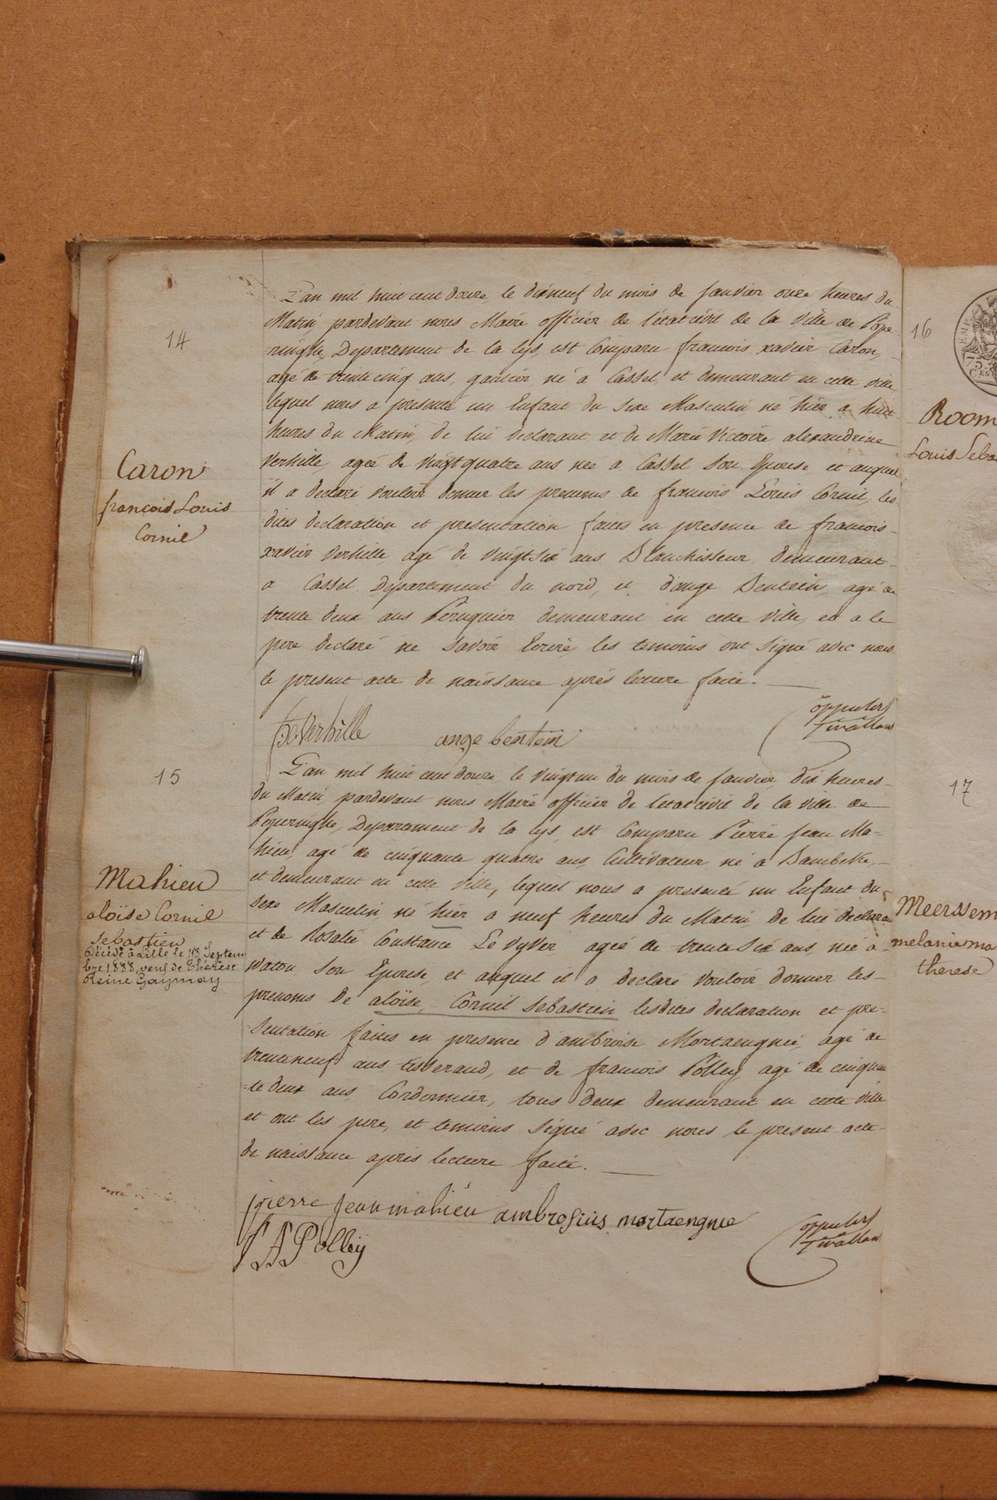 14
Caron
françois Louis
Cornil
L'an mil huit cent douze le dixneuf du mois de Janvier onze heures du
Matin, pardevant nous Maire officier de l'état civil de la ville de Pope-
ringhe, Departement de la Lys, est Comparu francois xavier Caron,
agé de trente cinq ans, né a Cassel, et demeurant en cette ville
lequel nous a presenté un Enfant du sexe Masculin né hier a huit
heures du Matin, de lui declarant et de Marie Victoire alexandrine
Verhille, agée de vingt quatre ans née a Cassel son Epouse et auquel
il a declaré vouloir donner les prenoms de francois Louis Cornil, les
dites declaration et presentation faites en presence de francois
xavier Verhille agé de vingt six ans Blanchisseur demeurant
a Cassel Departement du nord, et d'ange Bentein, agé de
trente deux ans Peruquier demeurant en cette ville, et a le
pere declaré ne savoir Ecrire les temoins ont signé avec nous
le present acte de naissance après lecture faite.
fx Verhille
ange bentein
15
Mahieu
aloïse Cornil
Sebastien
Décédé à Lille le 18 Septem
bre 1888, veuf de Thérèse
Reine
L'an mil huit cent douze le vingt un du mois de Janvier, dix heures
du Matin pardevant nous Maire officier de l'etat civil de la ville de
Poperinghe, Departement de la Lys, est Comparu Pierre Jean Ma-
hieu, agé de cinquante quatre ans Cultivateur né a
et demeurant en cette ville, lequel nous a presenté un Enfant du
sexe Masculin né hier a neuf heures du Matin de lui declarant
et de Rosalie Constance Le Vyver agée de trente six ans, née a
Watou son Epouse, et auquel il a declaré vouloir donner les
prenoms de aloïse, Cornil Sebastien lesdites declaration et pre-
sentation faites en presence d'ambroise Mortaengnie, agé de
trente neuf ans tisserand, et de francois Polley agé de cinquan-
te deux ans Cordonnier, tous deux demeurant en cette ville
et ont les pere, et temoins signé avec nous le present acte
de naissance après lecture faite.
pierre jean mahieu ambrosius mortaengnie
F A Polleÿ
16
Room
Louis Seba
17
Meerssem
melanie ma
therese